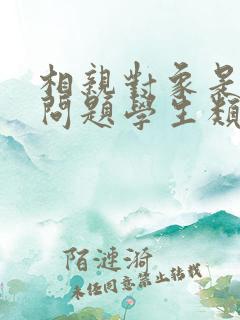 相親對象是
問題學生類
陌漣漪
未經同意禁止轉載